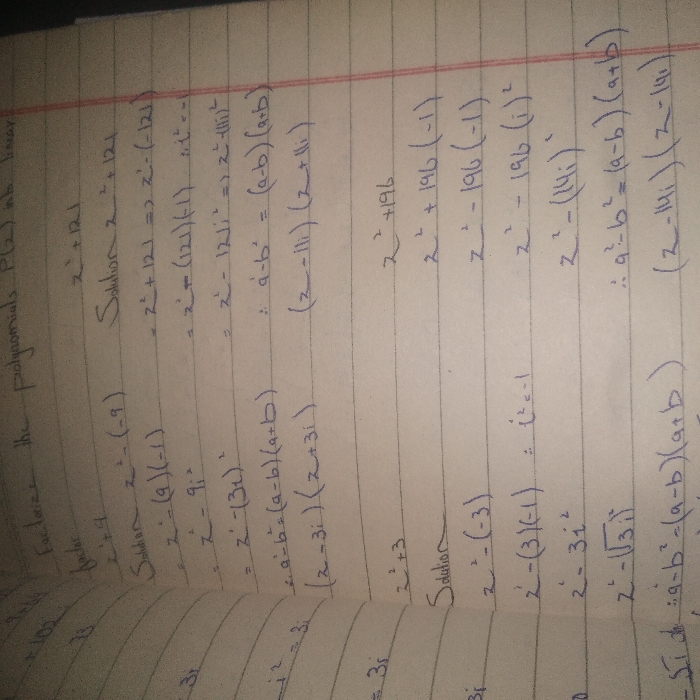 Factorize the polynomials P(z) into linear
factor
z²+9
Solution z²-(-9)
= z²-(9)(-1)
= z²-9i²
= z²-(3i)²
∴ a²-b²=(a-b)(a+b)
(z-3i)(z+3i)
z²+121
Solution z²+121
= z²+121 => z²-(-121)
= z²-(121)(-1) ∴ i²=-1
= z²-121i² => z²-(11i)²
∴ a²-b² = (a-b)(a+b)
(z-11i)(z+11i)
z²+3
Solution
z²-(-3)
z²-(3)(-1) ∴ i²=-1
z²-3i²
z²-(√3i)²
∴ a²-b²=(a-b)(a+b)
z²+196
z²+196(-1)
z²-196(-1)
z²-196(i)²
z²-(14i)²
∴ a²-b²=(a-b)(a+b)
(z-14i)(z-14i)
3i
i²=3i
=3i
3i